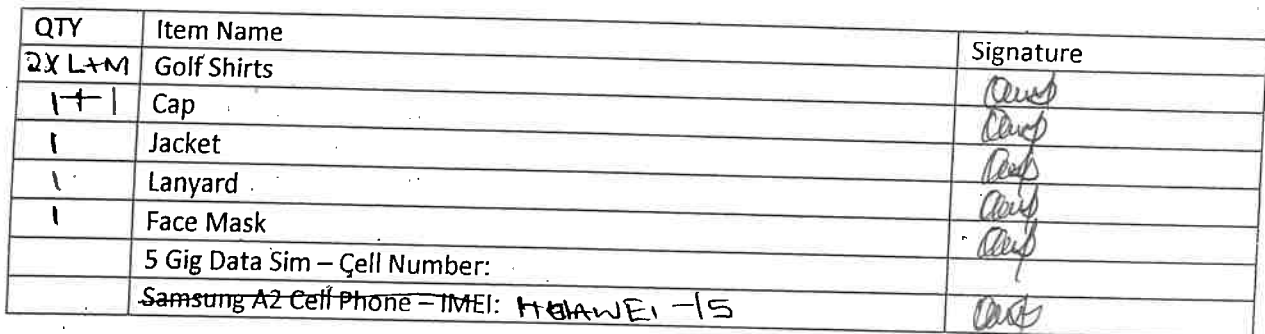 QTY Item Name Signature
2X L+M Golf Shirts
1+1 Cap
1 Jacket
1 Lanyard
1 Face Mask
5 Gig Data Sim – Cell Number:
Samsung A2 Cell Phone – IMEI: HUAWEI -15